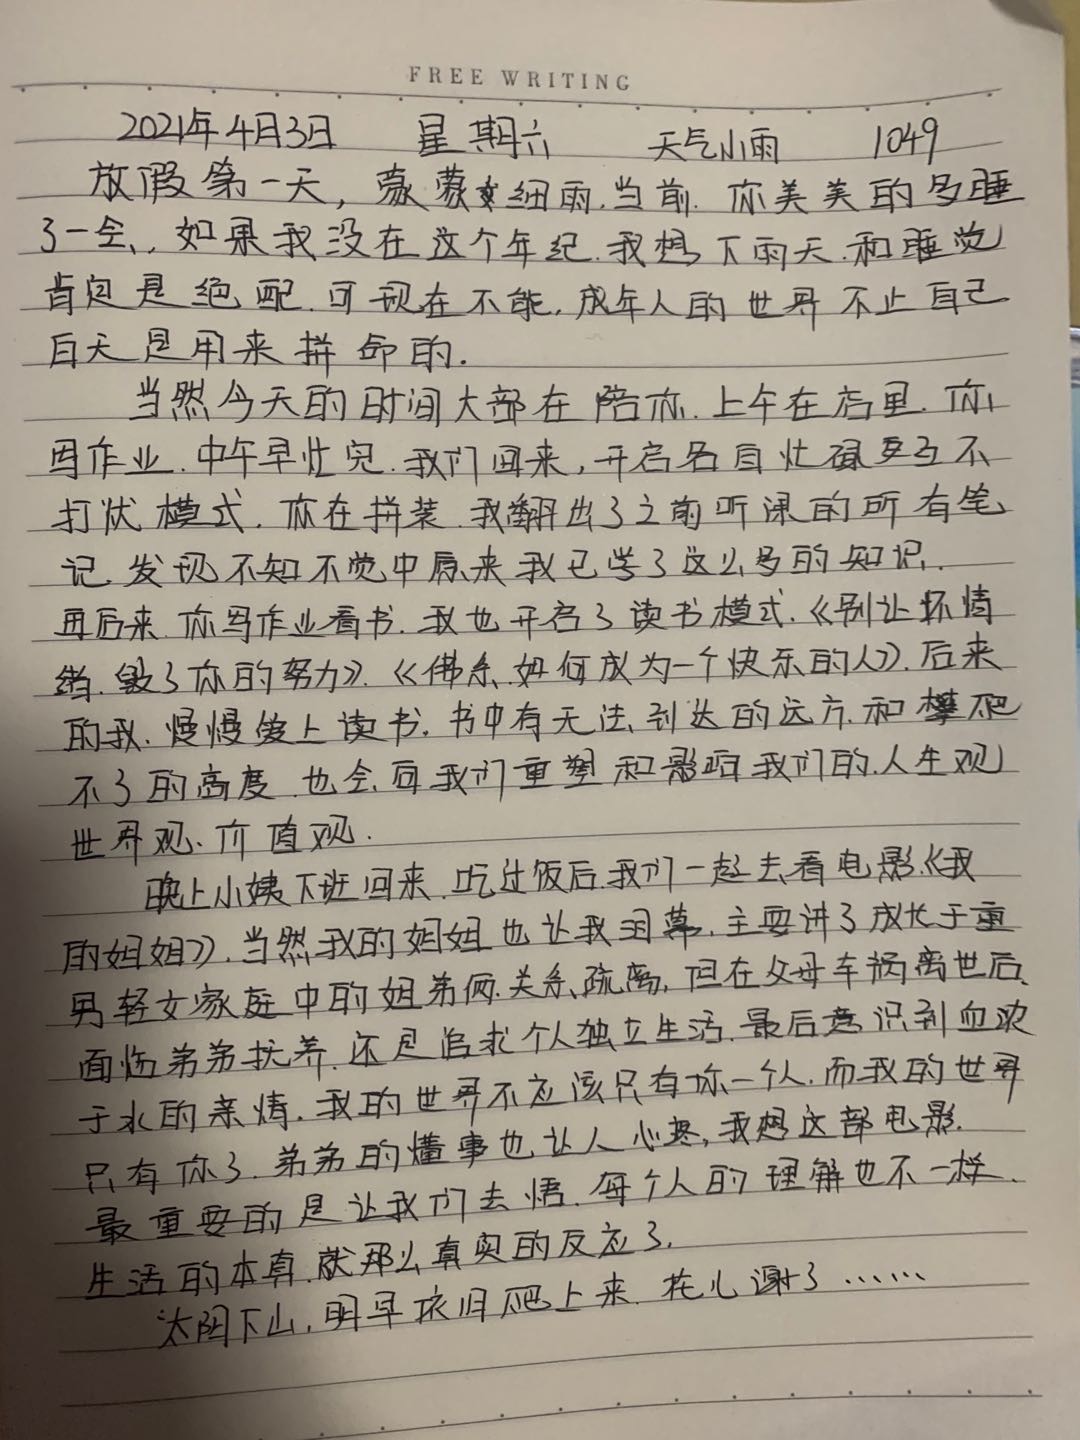 FREE WRITING
2021年4月3日 星期六 天气小雨 1049
放假第一天，蒙蒙细雨.当前.你美美的多睡
了一会、如果我没在这个年纪.我想下雨天.和睡觉
肯定是绝配.可现在不能.成年人的世界不止自己
白天是用来拼命的.
当然今天的时间大部在陪你.上午在店里.你
写作业.中午早忙完.我们回来,开启各自忙碌互不
打扰模式.你在拼装.我翻出了之前听课的所有笔
记.发现不知不觉中原来我已学了这么多的知识.
再后来.你写作业看书.我也开启了读书模式.《别让坏情
绪.毁了你的努力》.《佛系.如何成为一个快乐的人》.后来
的我.慢慢爱上读书.书中有无法到达的远方.和攀爬
不了的高度.也会向我们重塑和影响我们的.人生观
世界观.价值观.
晚上小姨下班回来.吃过饭后.我们一起去看电影.《我
的姐姐》.当然.我的姐姐也让我泪幕.主要讲了成长于重
男轻女家庭中的姐弟俩.关系疏离,但在父母车祸离世后.
面临弟弟抚养.还是追求个人独立生活.最后意识到血浓
于水的亲情.我的世界不应该只有你一个人.而我的世界
只有你了.弟弟的懂事也让人心疼,我想这部电影.
最重要的是让我们去悟.每个人的理解也不一样.
生活的本真.就那么真实的反应了.
太阳下山,明早依旧爬上来.花儿谢了……